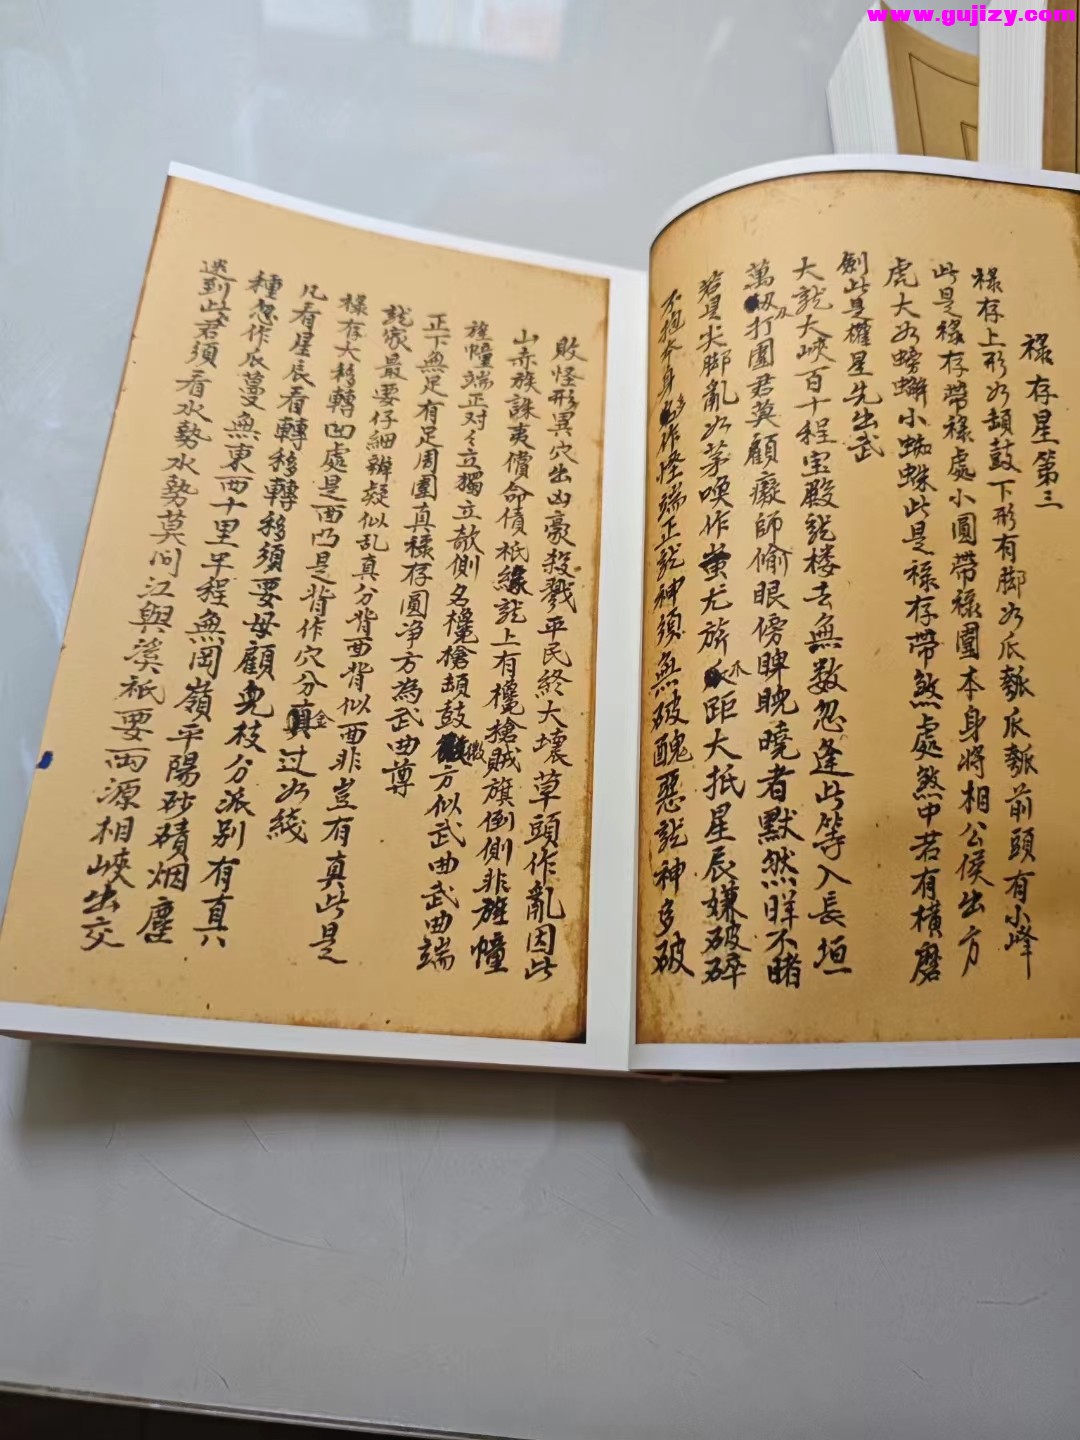 www.gujizy.com
祿存星第三
祿存上形如頓鼓下形有脚如瓜瓠瓜瓠前頭有小峰
此是祿存帶祿處小圓帶祿圍本身將相公侯出方
虎大如螃蠏小蜘蛛此是祿存帶煞處煞中若有橫磨
劍此是權星先出武
大龍大峽百十程宝殿龍楼去無数忽逢此等入長垣
萬仭打圍君莫顧癡師偷眼傍睥睨曉者默然佯不睹
若是尖脚亂如茅喚作蚩尤旂爪距大抵星辰嫌破碎
不抱本身多作怪端正龍神須無破醜惡龍神多破
敗怪形異穴出凶豪殺戮平民終大壞草頭作亂因此
山赤族誅夷償命債祇緣龍上有欃槍賊旗倒側非旌幢
旌幢端正对々立獨立欹側名欃槍頓鼓微方似武曲武曲端
正下無足有足周圍真祿存圓净方為武曲尊
龍家最要仔細辨疑似乱真分背面背似面非豈有真此是
祿存大移轉凹處是面凸是背作穴分金过如綫
凡看星辰看轉移轉移須要母顧兒枝分派別有真穴
種忽作瓜蔓無東西十里半程無岡嶺平陽砂磧烟塵
迷到此君須看水勢水勢莫问江與溪祇要両源相峽出交